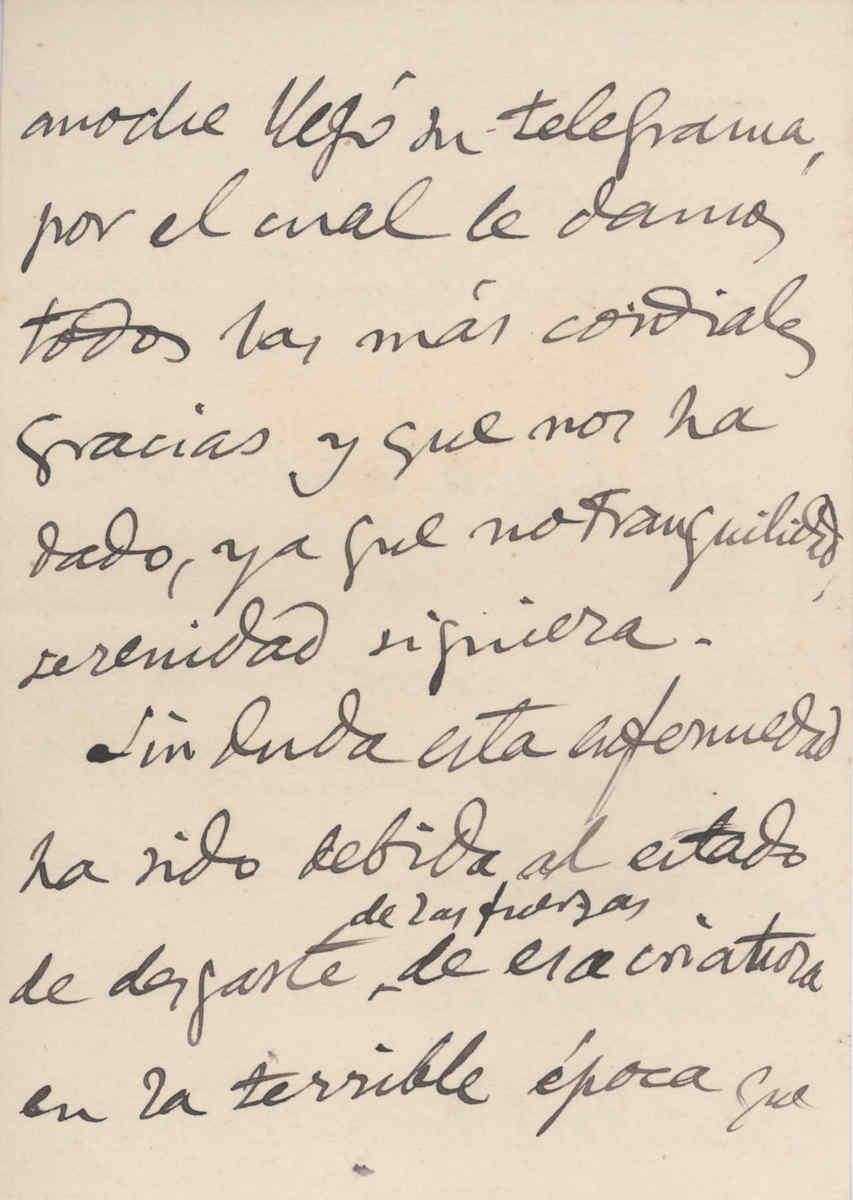 anoche llegó su telegrama,
por el cual le damos
todos las más cordiales
gracias y que nos ha
dado, ya que no tranquilidad,
serenidad siquiera.
Sin duda esta enfermedad
ha sido debida al estado
de las fuerzas
de desgaste de esa criatura
en la terrible época que